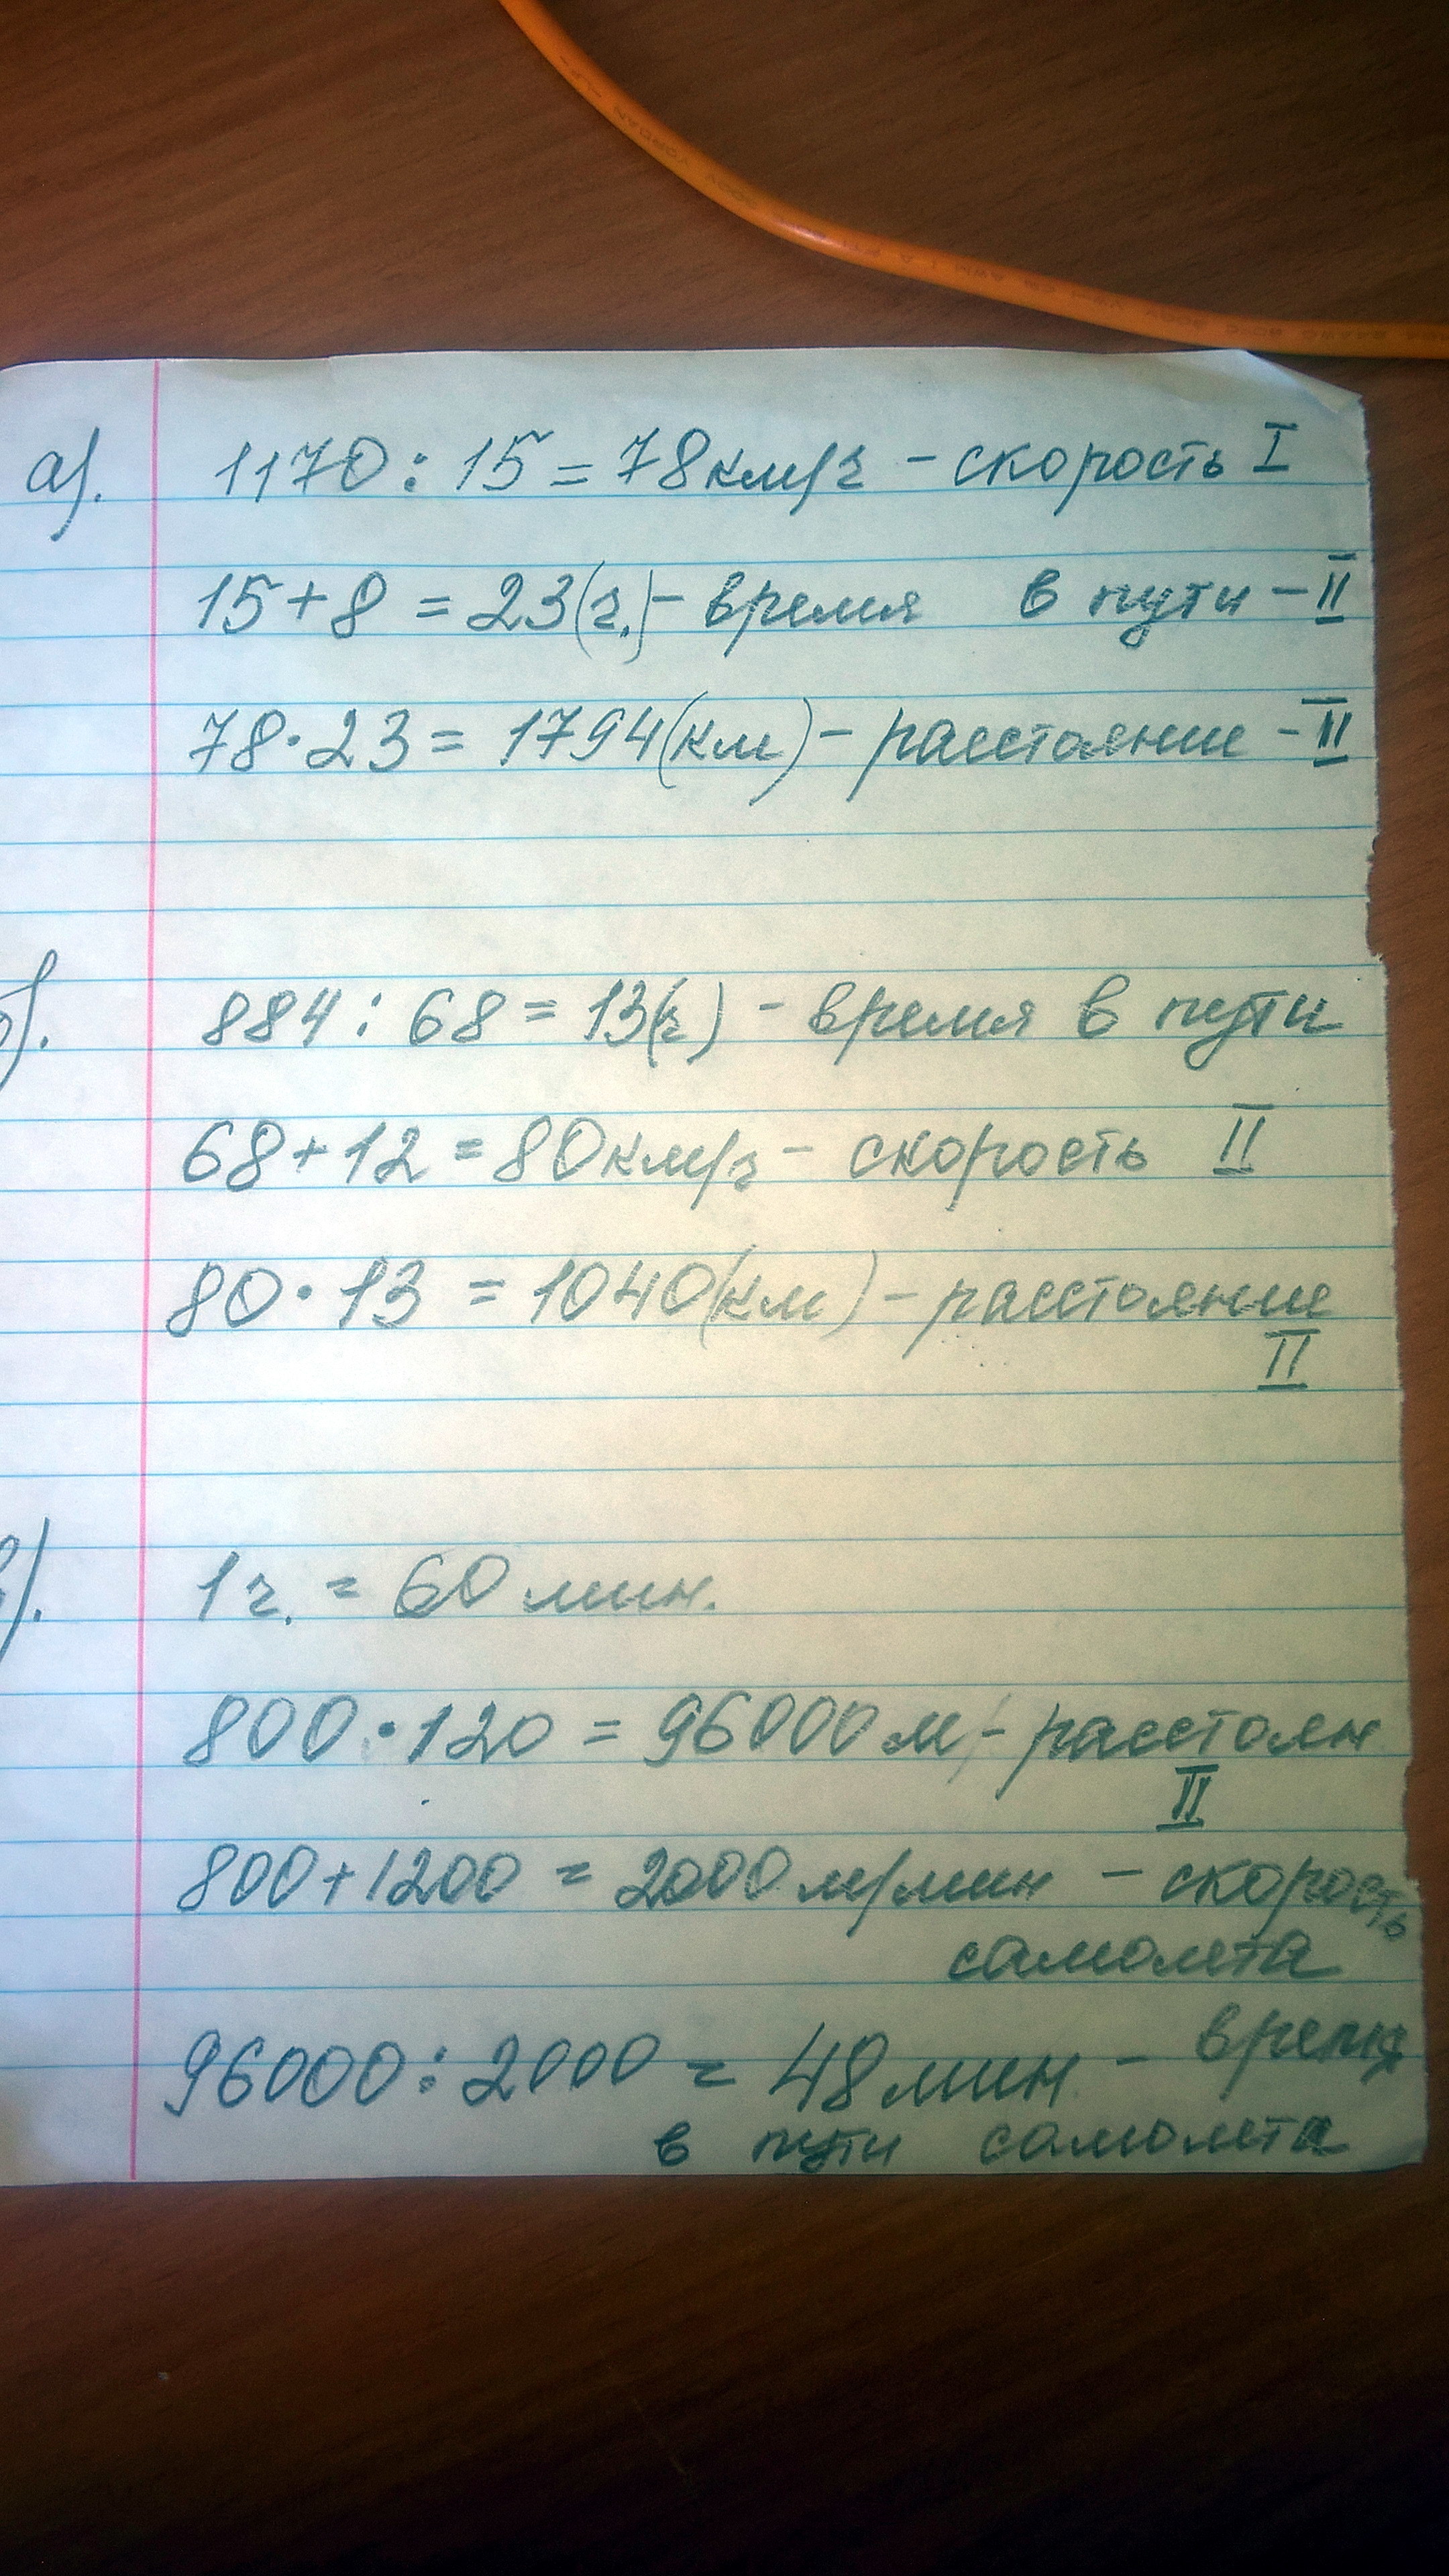 а). 1170 : 15 = 78км/ч - скорость I
15 + 8 = 23(ч.) - время в пути - II
78 · 23 = 1794(км) - расстояние - II
б). 884 : 68 = 13(ч) - время в пути
68 + 12 = 80км/ч - скорость II
80 · 13 = 1040(км) - расстояние
II
в). 1ч. = 60 мин.
800 · 120 = 96000 м - расстоян
II
800 + 1200 = 2000 м/мин - скорость
самолета
96000 : 2000 = 48 мин - время
в пути самолета